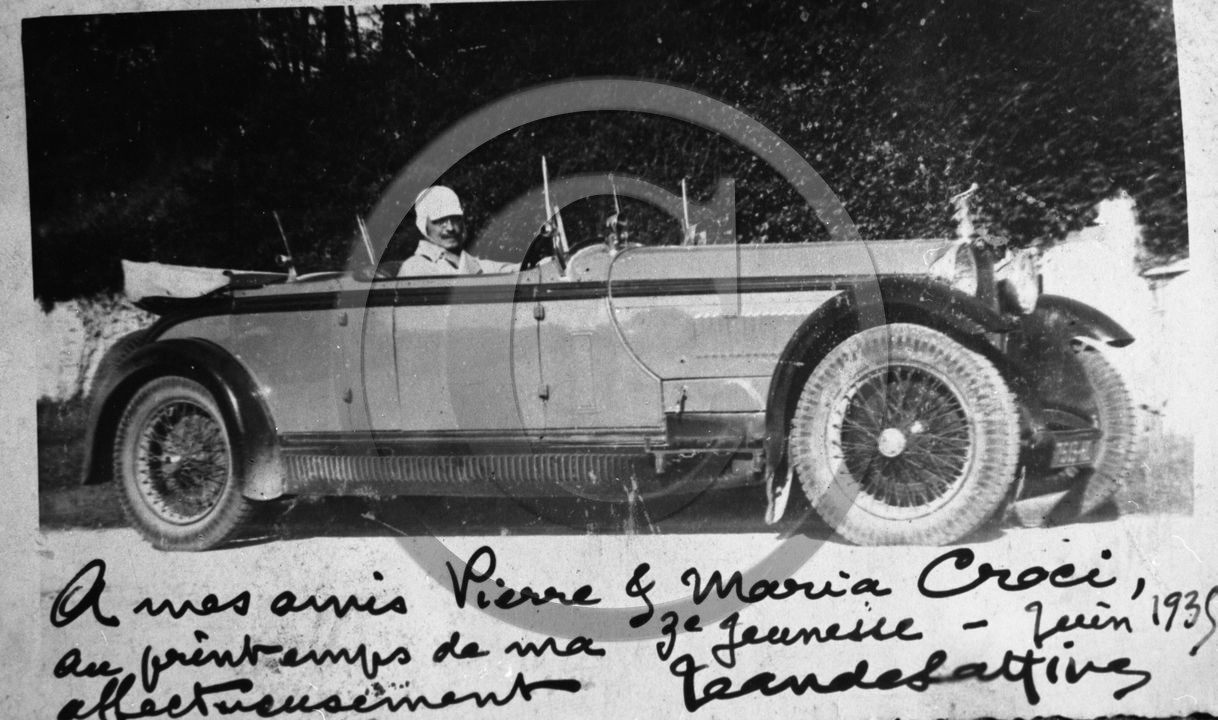 A mes amis Pierre & Maria Croci,
au printemps de ma 3e jeunesse - Juin 1935
affectueusement